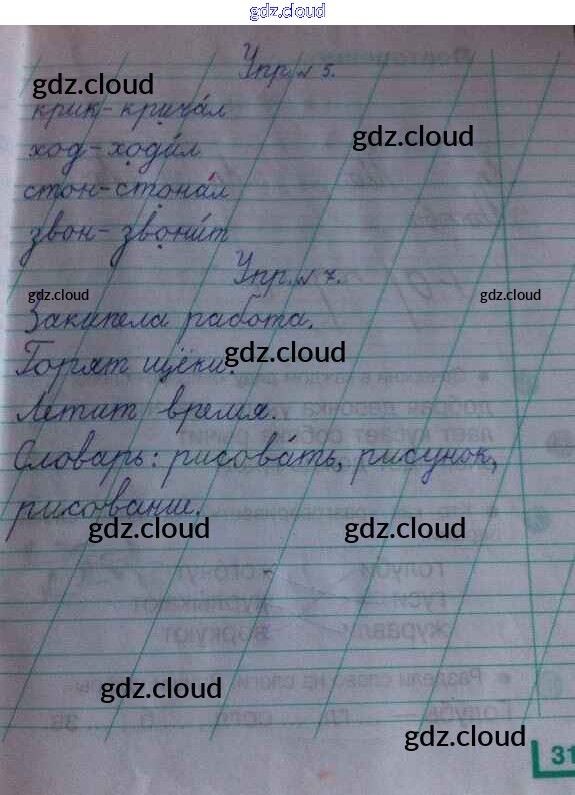 gdz.cloud
Упр. № 5.
gdz.cloud
крик-крича́л
gdz.cloud
ход-ходи́л
стон-стона́л
звон-звони́т
Упр. № 7.
gdz.cloud
gdz.cloud
Закипела работа.
Горят щёки.
gdz.cloud
Летит время.
Словарь: рисова́ть, рисунок,
рисование.
gdz.cloud
gdz.cloud
gdz.cloud
gdz.cloud
31